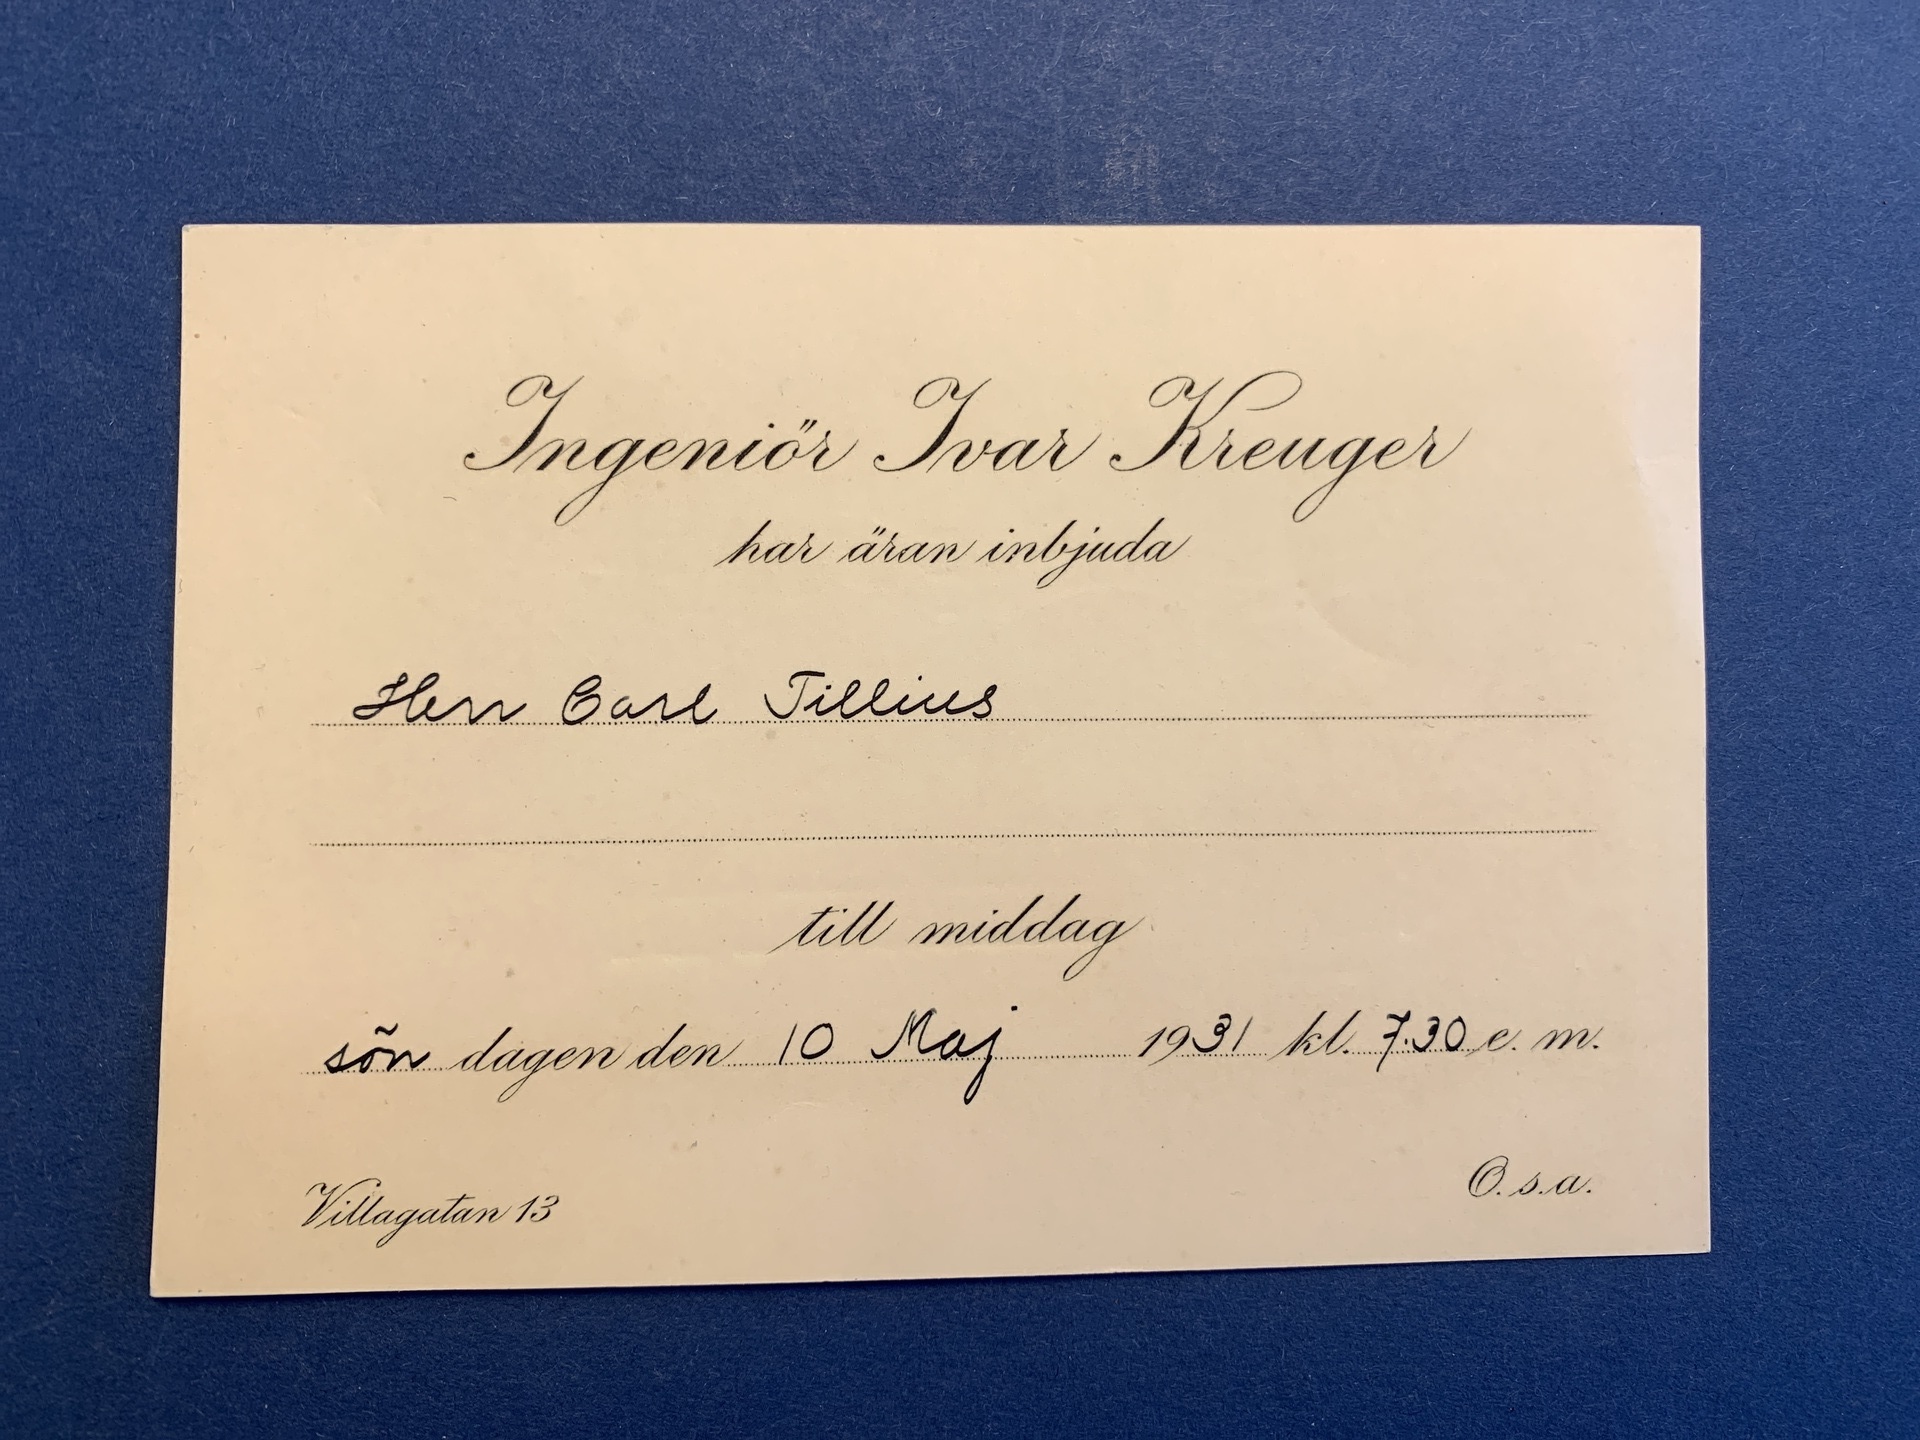 Ingeniör Ivar Kreuger
har äran inbjuda
Herr Carl Tillius
till middag
sön dagen den 10 Maj 1931 kl. 7.30 e. m.
Villagatan 13
O. s. a.